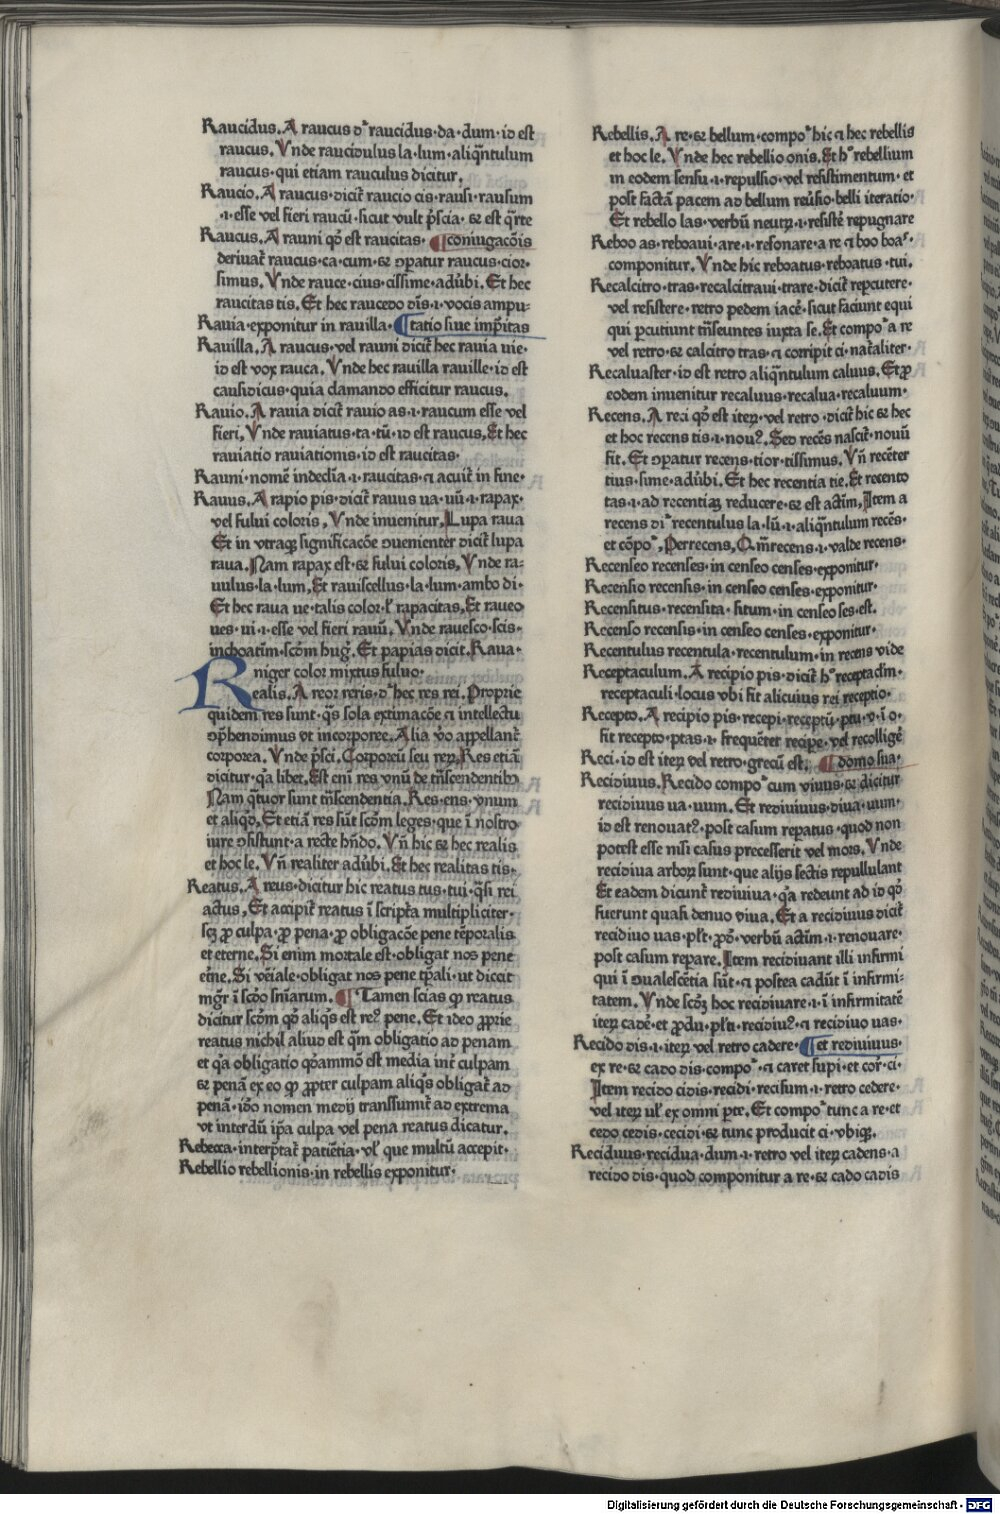 Raucidus. A raucus d͛ raucidus·da·dum·id est
raucus. Vnde raucidulus la·lum·aliq̄ntulum
raucus·qui etiam rauculus dicitur.
Raucio. A raucus·dicit͛ raucio cis·rausi·rausum
·i·esse vel fieri raucū·sicut vult p̄scia·⁊ est q̄rte
Raucus. A rauni qď est raucitas· ¶coniugacōis
deriuat͛ raucus·ca·cum·⁊ ꝯparatur raucus·cior·
simus. Vnde rauce·cius·cissime·adūbi. Et hec
raucitas tis. Et hec raucedo dis·i·vocis ampu-
Rauia exponitur in rauilla· ¶tatio siue imp̄itas
Rauilla. A raucus·vel rauni dicit͛ hec rauia uie·
id est vox rauca. Vnde hec rauilla rauille·id est
causidicus·quia clamando efficitur raucus.
Rauio. A rauia dicit͛ rauio as·i·raucum esse vel
fieri. Vnde rauiatus·ta·tū·id est raucus. Et hec
rauiatio rauiationis·id est raucitas·
Rauni·nomē indeclīa·i·raucitas·⁊ acuit͛ in fine·
Rauus. A rapio pis·dicit͛ rauus ua·uū·i·rapax·
vel fului coloris. Vnde inuenitur. Lupa raua
Et in vtraqꝫ significacōe ꝯuenienter dicit͛ lupa
raua. Nam rapax est·⁊ fului coloris. Vnde ra-
uulus·la·lum. Et rauiscellus·la·lum·ambo di·
Et hec raua ue·talis color·ł rapacitas. Et raueo
ues·ui·i·esse vel fieri rauū. Vnde rauesco·scis·
inchoatīm·scōm hug͛. Et papias dicit. Raua·
niger color mixtus fuluo·
Realis. A reor reris·d͛ hec res rei. Proprie
quidem res sunt·q̄s sola extimacōe ⁊ intellectu
ꝯp̄hendimus vt incorporee. Alia v̊o appellant͛
corporea. Vnde p̄sci. Corporeū seu reꝝ. Res etiā
dicitur·q̄a libet. Est eni res vnū de tn̄scendentibꝫ
Nam q̄tuor sunt tn̄scendentia. Res·ens·vnum
et aliqď. Et etiā res sūt scōm leges·que ī nostro
iure ꝯsistunt·a recte hn̄do. Vn̄ hic ⁊ hec realis
et hoc le. Vn̄ realiter adūbi. Et hec realitas tis·
Reatus. A reus·dicitur hic reatus tus·tui·q̄si rei
actus. Et accipit͛ reatus ī scripťa multipliciter·
scꝫ ꝓ culpa·ꝓ pena·ꝓ obligacōe pene tēporalis
et eterne. Si enim mortale est·obligat nos pene
et̄ne. Si vēiale·obligat nos pene tp̄ali·ut dicit
mgr̄ ī scďo sn̄iarum. ¶Tamen scias ꝙ reatus
dicitur scōm qď aliq̄s est reꝰ pene. Et ideo ꝓprie
reatus nichil aliud est q̄m obligatio ad penam
et q̄a obligatio qďammō est media int͛ culpam
⁊ penā·ex eo ꝙ ꝓpter culpam aliq̄s obligat͛ ad
penā·iďo nomen medij transsumit͛ ad extrema
vt interdū ip̄a culpa vel pena reatus dicatur.
Rebecca·interp̄tat͛ patiētia·vł que multū accepit·
Rebellio rebellionis·in rebellis exponitur·
Rebellis. A re·⁊ bellum·compo͛ hic ⁊ hec rebellis
et hoc le. Vnde hec rebellio onis. Et h͛ rebellium
in eodem sensu·i·repulsio·vel resistimentum·et
post factā pacem ad bellum reūsio·belli iteratio·
Et rebello las·verbū neutꝝ·i·resistē repugnare
Reboo as·reboaui·are·i·resonare·a re ⁊ boo boas·
componitur. Vnde hic reboatus·reboatus·tui.
Recalcitro·tras·recalcitraui·trare·dicit͛ repcutere·
vel resistere·retro pedem iacē·sicut faciunt equi
qui pcutiunt tn̄seuntes iuxta se. Et compo͛ a re
vel retro·⁊ calcitro tras·⁊ corripit ci·nat͛aliter·
Recaluaster·id est retro aliq̄ntulum caluus. Et ꝓ
eodem inuenitur recaluus·recalua·recaluum·
Recens. A reci qď est iteꝝ·vel retro·dicit͛ hic ⁊ hec
et hoc recens tis·i·nouꝰ. Sed recēs nascit͛·nouū
fit. Et ꝯparatur recens·tior·tissimus. Vn̄ recēter
tius·sime·adūbi. Et hec recentia tie. Et recento
tas·i·ad recentiaꝫ reducere·⁊ est actīm. Item a
recens di͛ recentulus la·lū·i·aliq̄ntulum recēs·
et cōpo͛. Perrecens. Om̄recens·i·valde recens·
Recenseo recenses·in censeo censes·exponitur·
Recensio recensis·in censeo censes·exponitur·
Recensitus·recensita·situm·in censeo ses·est.
Recenso recensis·in censeo censes·exponitur·
Recentulus recentula·recentulum·in recens vide
Receptaculum. A recipio pis·dicit͛ h͛ receptaclm·
receptaculi·locus vbi fit alicuius rei receptio·
Recepto. A recipio pis·recepi·receptū·ptu·v·ī o·
fit recepto·ptas·i·frequēter recipe·vel recolligē
Reci·id est iteꝝ vel retro·grecū est. ¶domo sua·
Recidiuus. Recido compo͛ cum viuus·⁊ dicitur
recidiuus ua·uum. Et rediuiuus·diua·uum·
id est renouatꝰ·post casum repatus·quod non
potest esse nisi casus precesserit vel mors. Vnde
recidiua arboꝝ sunt·que alijs sectis repullulant
Et eadem dicunt͛ rediuiua·q̄a redeunt ad id qď
fuerunt quasi denuo viua. Et a recidiuus dicit͛
recidiuo uas·pł͛t·ꝓď·verbū actīm·i·renouare·
post casum repare. Item recidiuant illi infirmi
qui ī ꝯualescētia sūt·⁊ postea cadūt ī infirmi-
tatem. Vnde scōꝫ hoc recidiuare·i·ī infirmitatē
iteꝝ cadē·et ꝓdū·pł͛ti·recidiuꝰ·⁊ recidiuo uas·
Recido dis·i·iteꝝ vel retro cadere· ¶et rediuiuus·
ex re·⁊ cado dis·compo͛·⁊ caret supi·et cor͛·ci·
Item recido cidis·recidi·recisum·i·retro cedere·
vel iteꝝ uł ex omni pte. Et compo͛ tunc a re·et
cedo cedis·cecidi·⁊ tunc producit ci·vbiqꝫ.
Reciduus·recidua·dum·i·retro vel iteꝝ cadens·a
recido dis·quod componitur a re·⁊ cado cadis
Digitalisierung gefördert durch die Deutsche Forschungsgemeinschaft - DFG